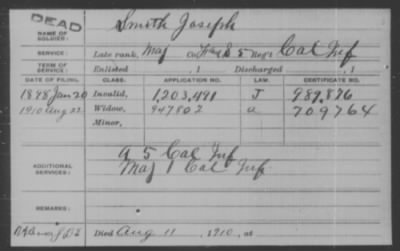 DEAD
NAME OF SOLDIER: Smith Joseph
SERVICE: Late rank, Maj Co. & S 5 Reg't Cal Inf
TERM OF SERVICE: Enlisted , 1 Discharged , 1
DATE OF FILING. CLASS. APPLICATION NO. LAW. CERTIFICATE NO.
1898 Jan 20 Invalid, 1,203,491 J 989,876
1910 Aug 22 Widow, 947802 a 709764
Minor,
ADDITIONAL SERVICES: 5 Cal Inf
Maj 1 Cal Inf
REMARKS:
Died Aug 11, 1910, at